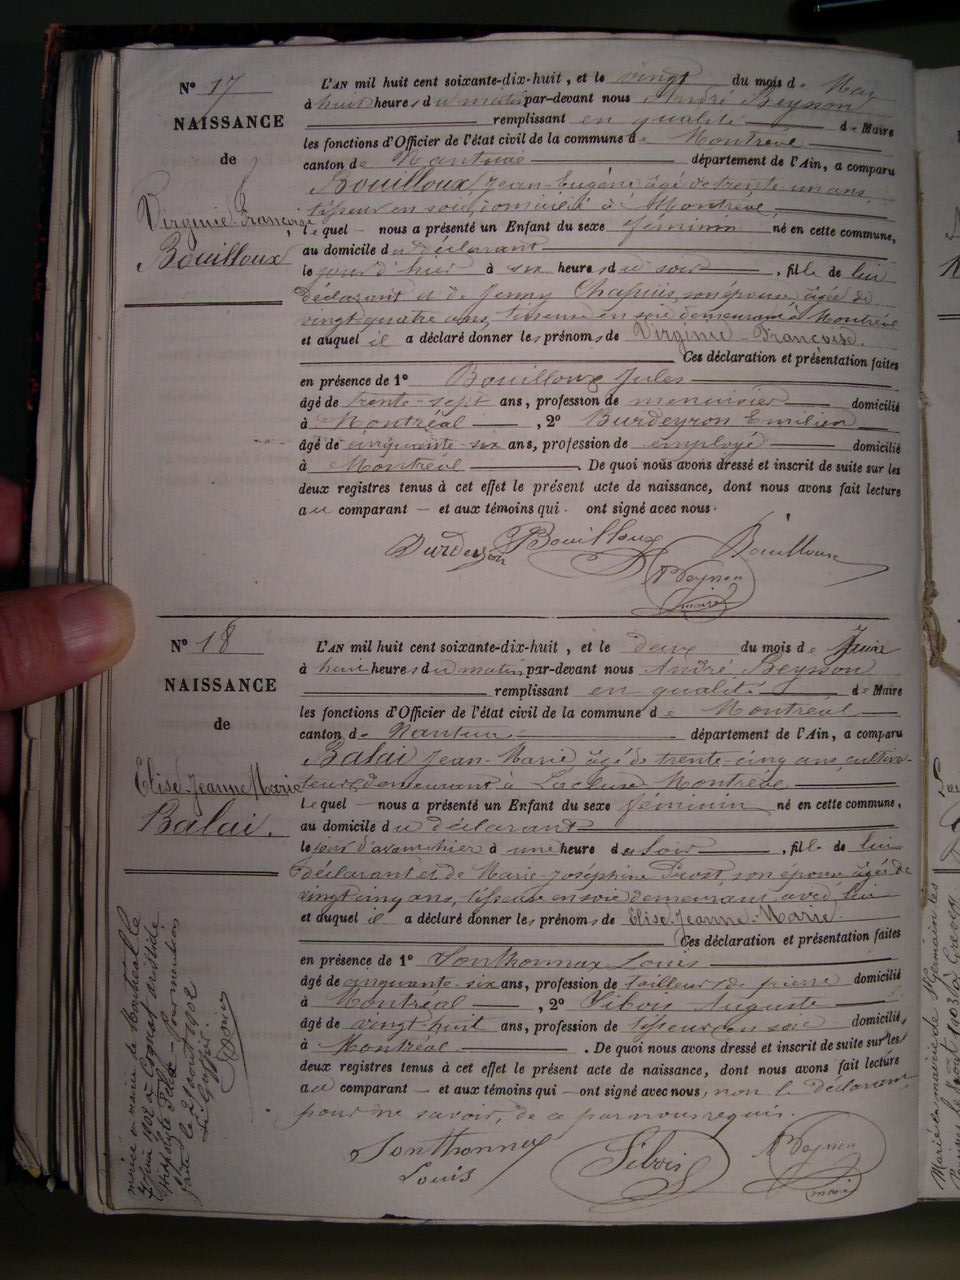 N° 17
NAISSANCE
de
Virginie-Françoise
Bouilloux
L'AN mil huit cent soixante-dix-huit, et le vingt du mois de May
à huit heures du matin par-devant nous André Beysson
remplissant en qualité de Maire
les fonctions d'Officier de l'état civil de la commune de Montréal
canton de Nantua département de l'Ain, a comparu
Bouilloux Jean-Eugène âgé de trente un ans,
tisseur en soie, domicilié à Montréal,
lequel nous a présenté un Enfant du sexe féminin né en cette commune,
au domicile du déclarant
le jour d'hui à six heures du soir, fille de lui
déclarant et de Jenny Chapuis, son épouse âgée de
vingt quatre ans, tisseuse en soie demeurant à Montréal
et auquel il a déclaré donner les prénoms de Virginie-Françoise.
Ces déclaration et présentation faites
en présence de 1° Bouilloux Jules
âgé de trente-sept ans, profession de menuisier domicilié
à Montréal, 2° Burdeyron Emilien
âgé de cinquante-six ans, profession de employé domicilié
à Montréal. De quoi nous avons dressé et inscrit de suite sur les
deux registres tenus à cet effet le présent acte de naissance, dont nous avons fait lecture
au comparant et aux témoins qui ont signé avec nous.
Burdeyron Bouilloux Bouilloux
A Beysson
maire
N° 18
NAISSANCE
de
Elise-Jeanne-Marie
Balai.
L'AN mil huit cent soixante-dix-huit, et le deux du mois de Juin
à huit heures du matin, par-devant nous André Beysson
remplissant en qualité de Maire
les fonctions d'Officier de l'état civil de la commune de Montréal
canton de Nantua département de l'Ain, a comparu
Balai Jean-Marie âgé de trente-cinq ans, cultiva-
teur, demeurant à La cluse Montréal
lequel nous a présenté un Enfant du sexe féminin né en cette commune,
au domicile du déclarant
le jour d'avant hier à une heure du soir, fille de lui
déclarant et de Marie-Joséphine Prost, son épouse âgée de
vingt cinq ans, tisseur en soie demeurant avec lui
et auquel il a déclaré donner les prénoms de Elise-Jeanne-Marie.
Ces déclaration et présentation faites
en présence de 1° Sonthonnax Louis
âgé de cinquante-six ans, profession de tailleur de pierre domicilié
à Montréal, 2° Sibois Auguste
âgé de vingt-huit ans, profession de tisseur en soie domicilié
à Montréal. De quoi nous avons dressé et inscrit de suite sur les
deux registres tenus à cet effet le présent acte de naissance, dont nous avons fait lecture
au comparant et aux témoins qui ont signé avec nous, non le déclarant
pour ne savoir, de ce par nous requis.
Sonthonnax Sibois A Beysson
Louis maire
mariée en mairie de Montréal le
juin 1902 à
le 2 août 1902